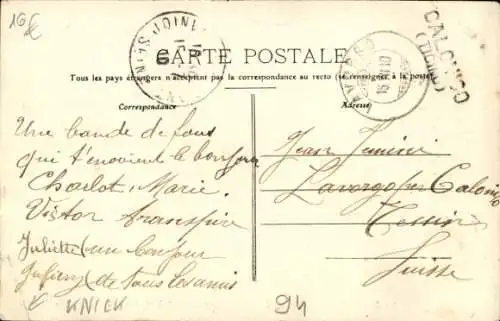 16 €
CARTE POSTALE
Tous les pays étrangers n'acceptent pas la correspondance au recto (se renseigner à la poste)
Correspondance
Adresse
CALONICO
(TICINO)
LAVORGO
Une bande de fous
qui t'envoient le bonjour
Charlot, Marie,
Victor transpire
Juliette (un bonjour
(de tous les amis
KNIEK
Jean
Lavorgo per Calonico
Tessin
Suisse
94